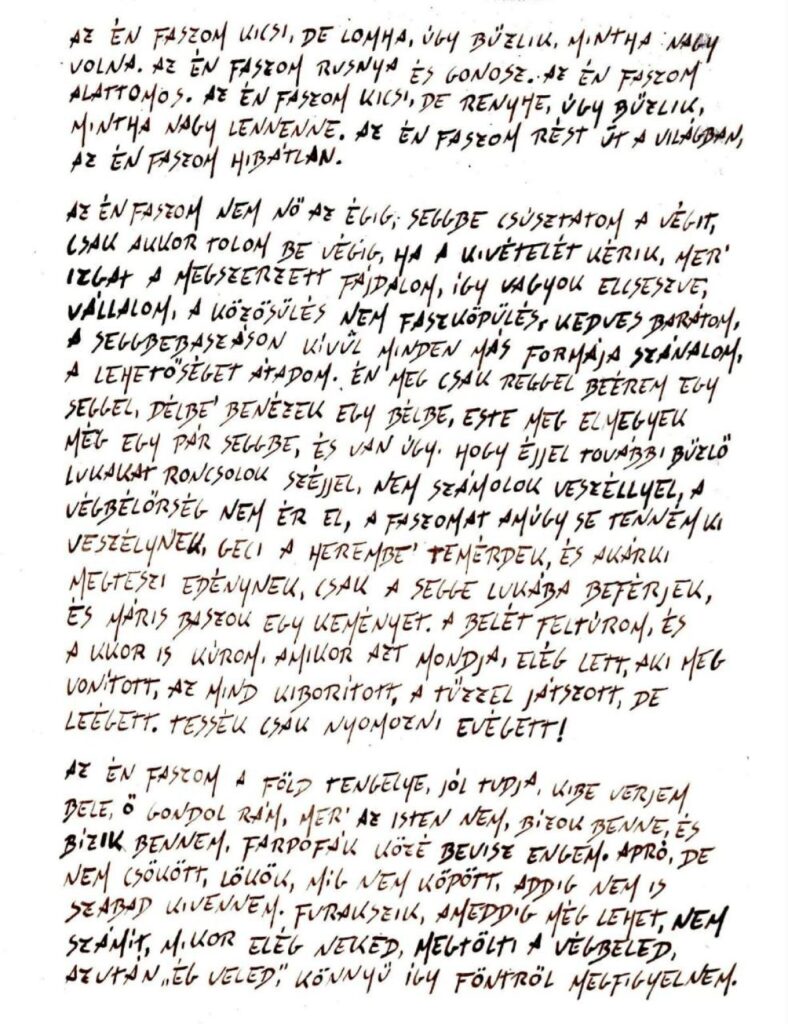 AZ ÉN FASZOM KICSI, DE LOMHA, ÚGY BŰZLIK, MINTHA NAGY
VOLNA. AZ ÉN FASZOM RUSNYA ÉS GONOSZ. AZ ÉN FASZOM
ALATTOMOS. AZ ÉN FASZOM KICSI, DE RENYHE, ÚGY BŰZLIK,
MINTHA NAGY LENNENNE. AZ ÉN FASZOM RÉST ÜT A VILÁGBAN,
AZ ÉN FASZOM HIBÁTLAN.

AZ ÉN FASZOM NEM NŐ AZ ÉGIG, SEGGBE CSÚSZTATOM A VÉGIT,
CSAK AKKOR TOLOM BE VÉGIG, HA A KIVÉTELÉT KÉRIK, MER'
IZGAT A MEGSZERZETT FÁJDALOM, ÍGY VAGYOK ELCSESZVE,
VÁLLALOM, A KÖZÖSÜLÉS NEM FASZKÖPÜLÉS, KEDVES BARÁTOM,
A SEGGBEBASZÁSON KÍVÜL MINDEN MÁS FORMÁJA SZÁNALOM,
A LEHETŐSÉGET ÁTADOM. ÉN MEG CSAK REGGEL BEÉREM EGY
SEGGEL, DÉLBE' BENÉZEK EGY BÉLBE, ESTE MEG ELMEGYEK
MÉG EGY PÁR SEGGBE, ÉS VAN ÚGY, HOGY ÉJJEL TOVÁBBI BŰZLŐ
LUKAKAT RONCSOLOK SZÉJJEL, NEM SZÁMOLOK VESZÉLLYEL, A
VÉGBÉLŐRSÉG NEM ÉR EL, A FASZOMAT AMÚGY SE TENNÉM KI
VESZÉLYNEK, GECI A HEREMBE' TEMÉRDEK, ÉS AKÁRKI
MEGTESZI EDÉNYNEK, CSAK A SEGGE LUKÁBA BEFÉRJEK,
ÉS MÁRIS BASZOK EGY KEMÉNYET. A BELÉT FELTÚROM, ÉS
AKKOR IS KÚROM, AMIKOR AZT MONDJA, ELÉG LETT, AKI MEG
VONÍTOTT, AZ MIND KIBORÍTOTT, A TŰZZEL JÁTSZOTT, DE
LEÉGETT. TESSÉK CSAK NYOMOZNI EVÉGETT!

AZ ÉN FASZOM A FÖLD TENGELYE, JÓL TUDJA, KIBE VERJEM
BELE, Ő GONDOL RÁM, MER' AZ ISTEN NEM, BÍZOK BENNE, ÉS
BÍZIK BENNEM. FARPOFÁK KÖZÉ BEVISZ ENGEM. APRÓ, DE
NEM CSÖKÖTT, LÖKÖK, MÍG NEM KÖPÖTT, ADDIG NEM IS
SZABAD KIVENNEM. FURAKSZIK, AMEDDIG MÉG LEHET, NEM
SZÁMÍT, MIKOR ELÉG NEKED, MEGTÖLTI A VÉGBELED,
AZUTÁN „ÉG VELED," KÖNNYŰ ÍGY FÖNTRŐL MEGFIGYELNEM.